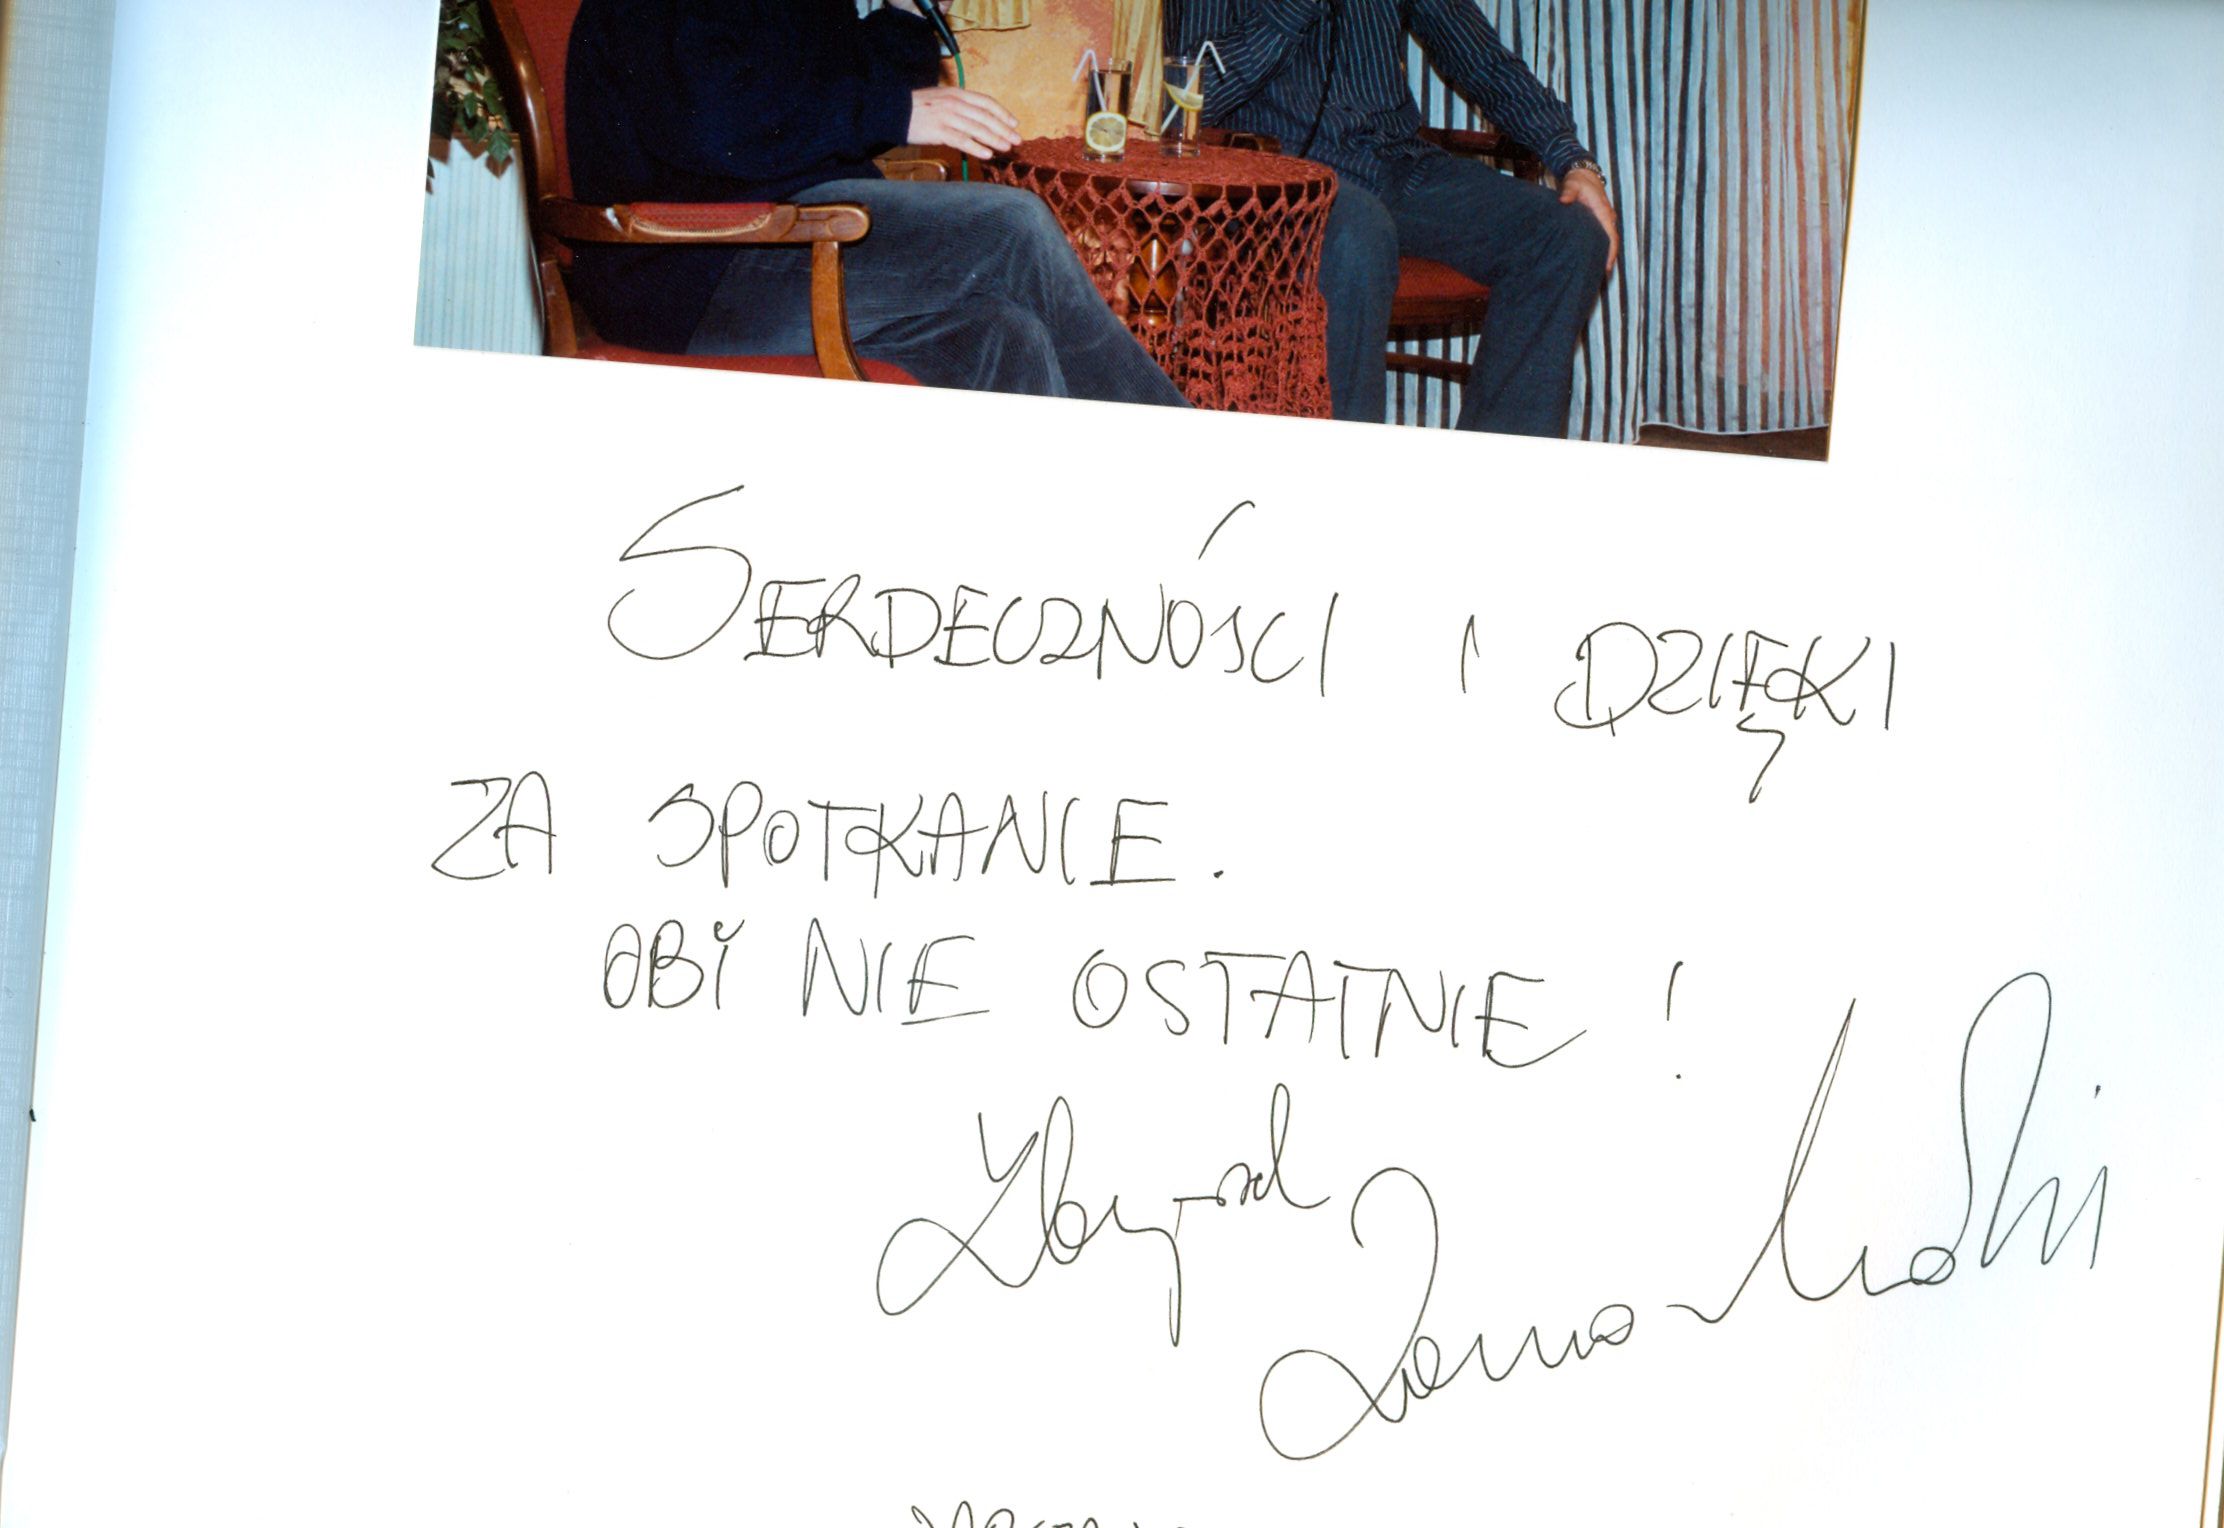 SERDECZNOŚCI I DZIĘKI
ZA SPOTKANIE.
OBY NIE OSTATNIE!
Zbigniew Zamachowski